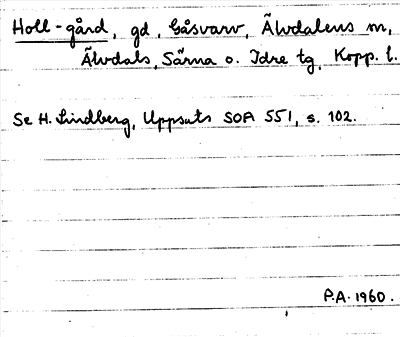 Holl-gård, gd, Gåsvarv, Älvdalens sn,
Älvdals, Särna o. Idre tg, Kopp. l.
Se H. Lindberg, Uppsats SOA 551, s. 102.
P.A. 1960.